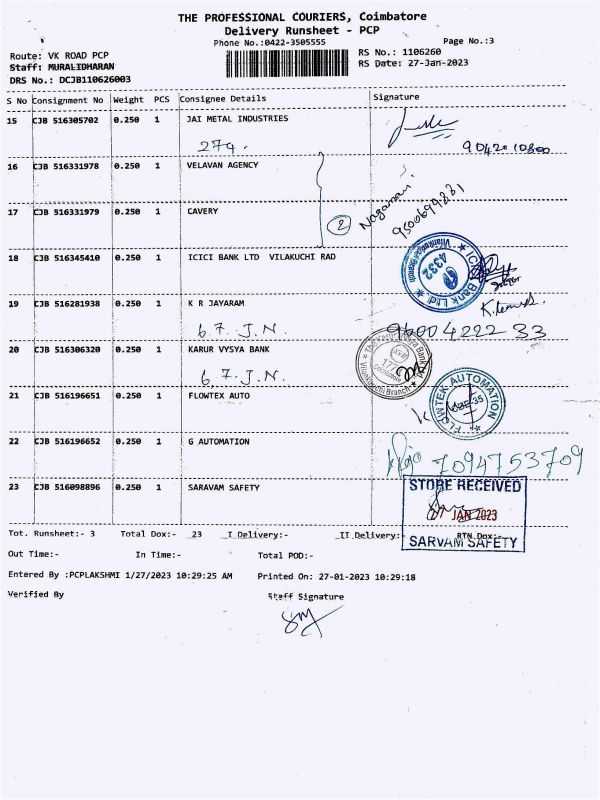 THE PROFESSIONAL COURIERS, Coimbatore
Delivery Runsheet - PCP
Phone No.:0422-3505555
Page No.:3
Route: VK ROAD PCP
RS No.: 1106260
Staff: MURALIDHARAN
RS Date: 27-Jan-2023
DRS No.: DCJB110626003
S No Consignment No Weight PCS Consignee Details Signature
15 CJB 516305702 0.250 1 JAI METAL INDUSTRIES
274. 9042010800
16 CJB 516331978 0.250 1 VELAVAN AGENCY
17 CJB 516331979 0.250 1 CAVERY
2
9500699831
18 CJB 516345410 0.250 1 ICICI BANK LTD VILAKUCHI RAD
ICICI Bank Ltd. 4332
19 CJB 516281938 0.250 1 K R JAYARAM
6.7. J.N. 96004222 33
20 CJB 516306320 0.250 1 KARUR VYSYA BANK
6.7. J.N.
The Karur Vysya Bank
21 CJB 516196651 0.250 1 FLOWTEX AUTO
FLOWTEK AUTOMATION
22 CJB 516196652 0.250 1 G AUTOMATION
7094753709
23 CJB 516098896 0.250 1 SARAVAM SAFETY
STORE RECEIVED
27 JAN 2023
SARVAM SAFETY
Tot. Runsheet:- 3 Total Dox:- 23 I Delivery:- II Delivery:- RTN Dox:-
Out Time:- In Time:- Total POD:-
Entered By :PCPLAKSHMI 1/27/2023 10:29:25 AM Printed On: 27-01-2023 10:29:18
Verified By Staff Signature